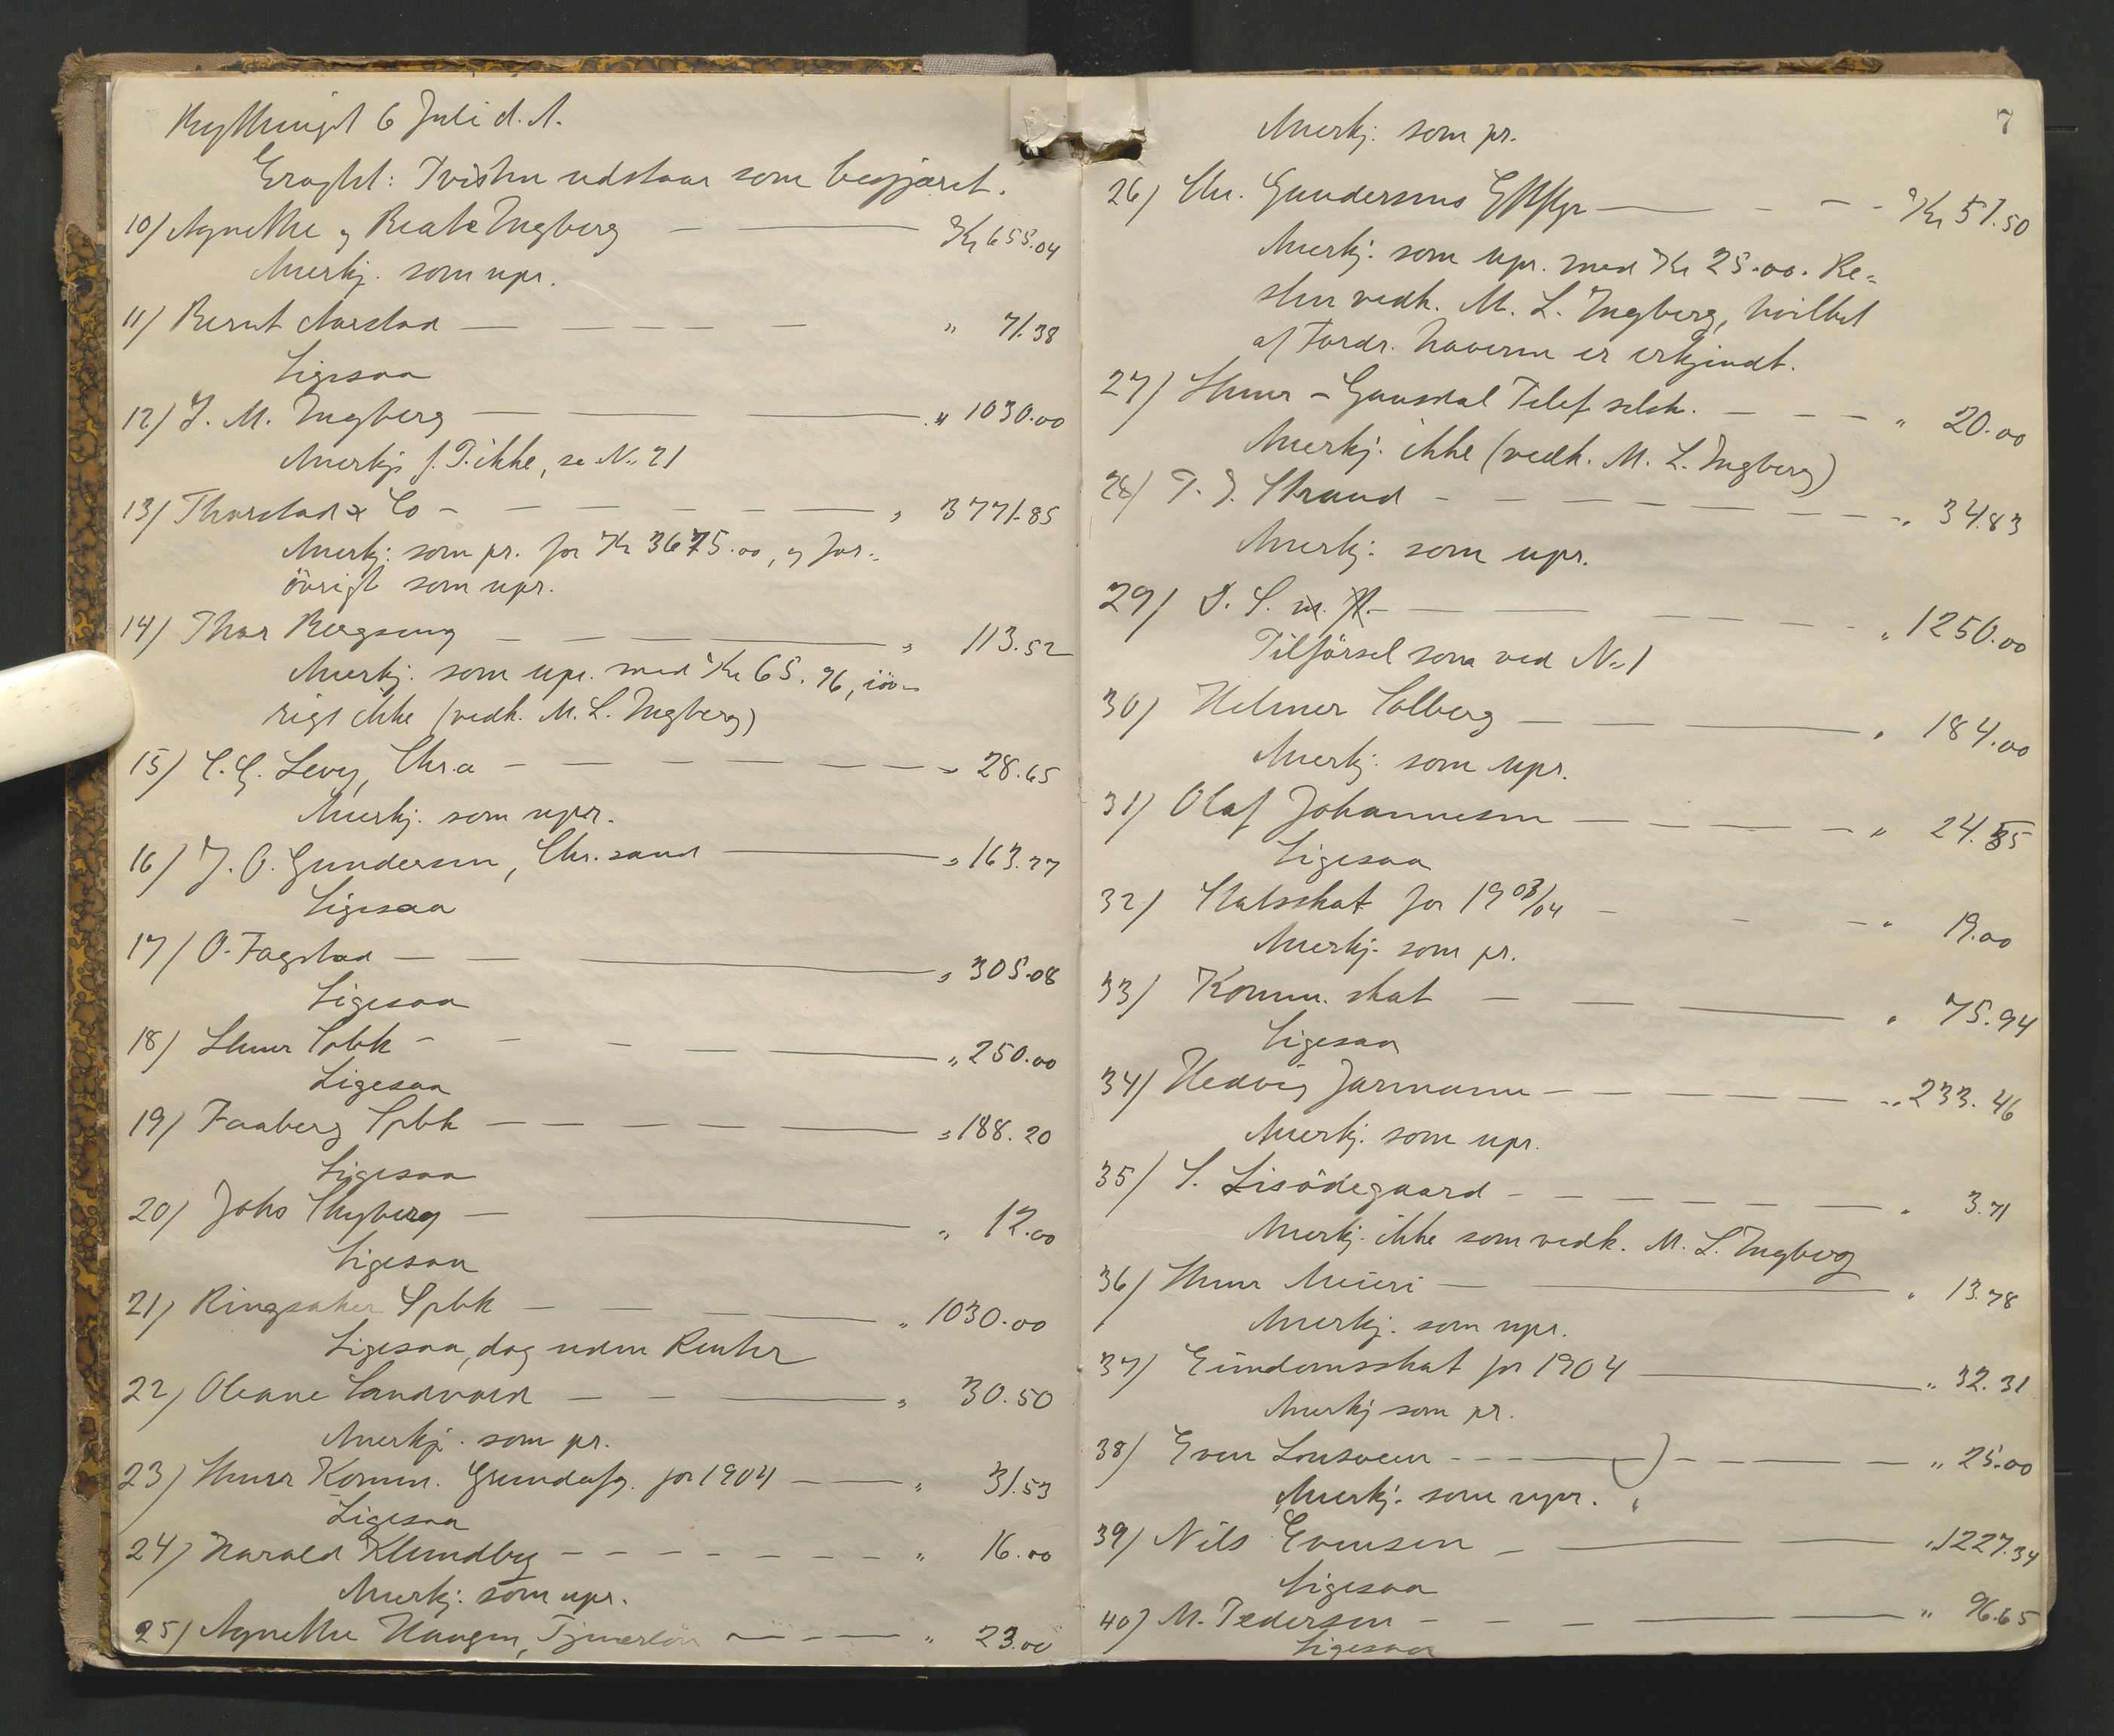 6 Juli d. A.
Eragtet: Tvisten udstaar som begjæret.
10) Agnethe og Beate Ingberg — — Kr 655.04
Anerkj. som upr.
11) Bernt Aarstad — — — — — " 71.38
Ligesaa
12) J. M. Ingberg — — — " 1030.00
Anerkj. f. T. ikke, se No. 21
13) Thorstad & Co — — — — — " 3771.85
Anerkj: som pr. for Kr 3675.00, og for-
övrigt som upr.
14) Thor Bergseng — — — — " 113.52
Anerkj. som upr. med Kr 65.96, iöv-
rigt ikke (vedk. M. L. Ingberg)
15) C. G. Levy, Chr.a — — — — — " 28.65
Anerkj. som upr.
16) J. O. Gundersen, Chr.sand — " 163.77
Ligesaa
17) O. Fagstad — — — " 305.08
Ligesaa
18) Lhmr Spbk — — — — " 250.00
Ligesaa
19) Faaberg Spbk — — — — " 188.20
Ligesaa
20) Johs Skyberg — — " 12.00
Ligesaa
21) Ringsaker Spbk — — — " 1030.00
Ligesaa, dog uden Renter
22) Oleane Sandvold — — — " 30.50
Anerkj. som pr.
23) Lhmr Komm. Grundafg. for 1904 — — " 31.53
Ligesaa
24) Harald Klundby — — — — — — — " 16.00
Anerkj: som upr.
25) Agnethe Haugen, Tjenerlön — — — " 23.00
7
Anerkj: som pr.
26) Chr. Gundersens Eftflgr — — — Kr 51.50
Anerkj: som upr. med Kr 25.00. Re-
sten vedk. M. L. Ingberg, hvilket
af Fordr. haveren er erkjendt.
27) Lhmr - Gausdal Telef selsk. — — — " 20.00
Anerkj. ikke (vedk. M. L. Ingberg)
28) T. J. Strand — — — — — — — " 34.83
Anerkj: som upr.
29) D. S. — — — — — " 1250.00
Tilförsel som ved No. 1
30) Helmer Solberg — — — " 184.00
Anerkj: som upr.
31) Olaf Johannesen — — — — " 24.85
Ligesaa
32) Statsskat for 1903/04 — — — " 19.00
Anerkj. som pr.
33) Komm. skat — — — " 75.94
Ligesaa
34) Hedvig Jarmann — — — — — — " 233.46
Anerkj. som upr.
35) S. Lisödegaard — — — — — — " 3.71
Anerkj. ikke som vedk. M. L. Ingberg
36) Lhmr Meieri — — " 13.78
Anerkj. som upr.
37) Eiendomsskat for 1904 — " 32.31
Anerkj som pr.
38) Even Lonsveen — — — — — — — " 25.00
Anerkj. som upr.
39) Nils Evensen — — — " 1227.34
Ligesaa
40) M. Pedersen — — — — " 96.65
Ligesaa